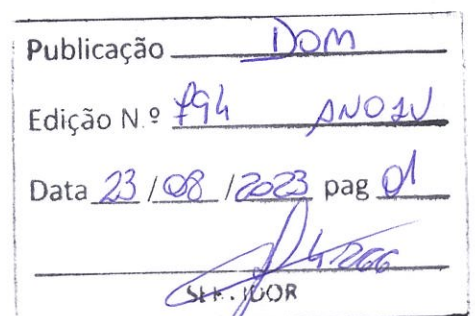 Publicação DOM
Edição N.º 794 ANO IV
Data 23/08/2023 pag 01
SERVIDOR